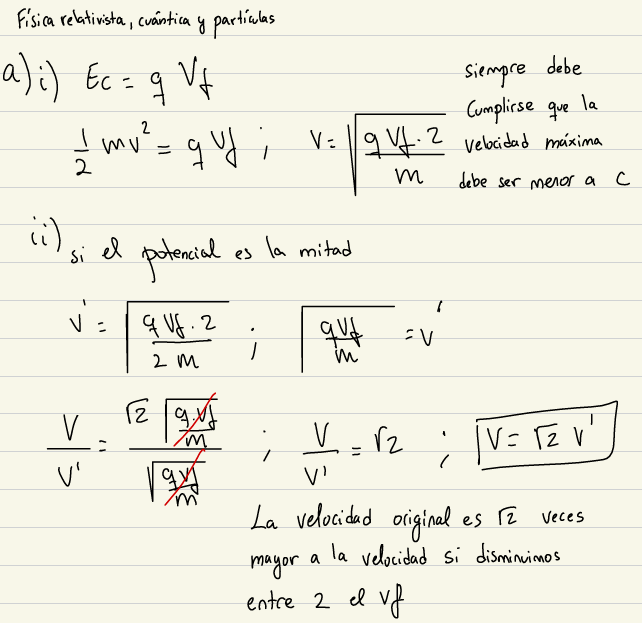 Física relativista, cuántica y partículas
a) i) Ec = q Vf
siempre debe
Cumplirse que la
velocidad máxima
debe ser menor a c
1/2 mv² = q Vf ; v = √(q Vf · 2 / m)
ii) si el potencial es la mitad
v' = √(q Vf · 2 / 2 m) ; √(q Vf / m) = v'
V / V' = √2 √(q·Vf / m) / √(q Vf / m) ; V / V' = √2 ; V = √2 V'
La velocidad original es √2 veces
mayor a la velocidad si disminuimos
entre 2 el Vf